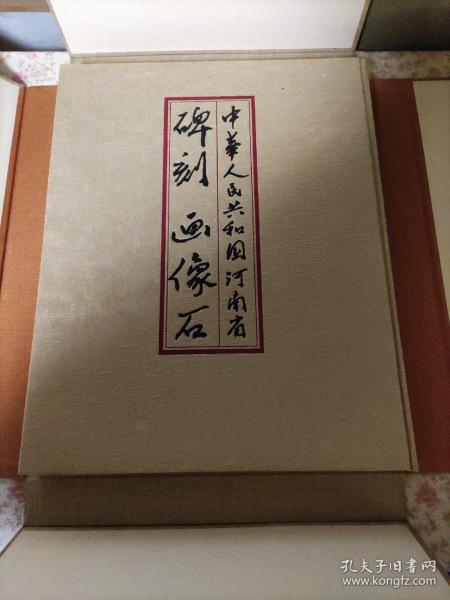 中華人民共和国河南省
碑刻 画像石
孔夫子旧书网
www.kongfz.com